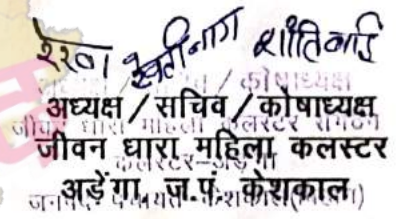 रेखा रेवतीनाग शांतिबाई
अध्यक्ष / सचिव / कोषाध्यक्ष
जीवन धारा महिला कलस्टर
अड़ेंगा ज.पं. केशकाल